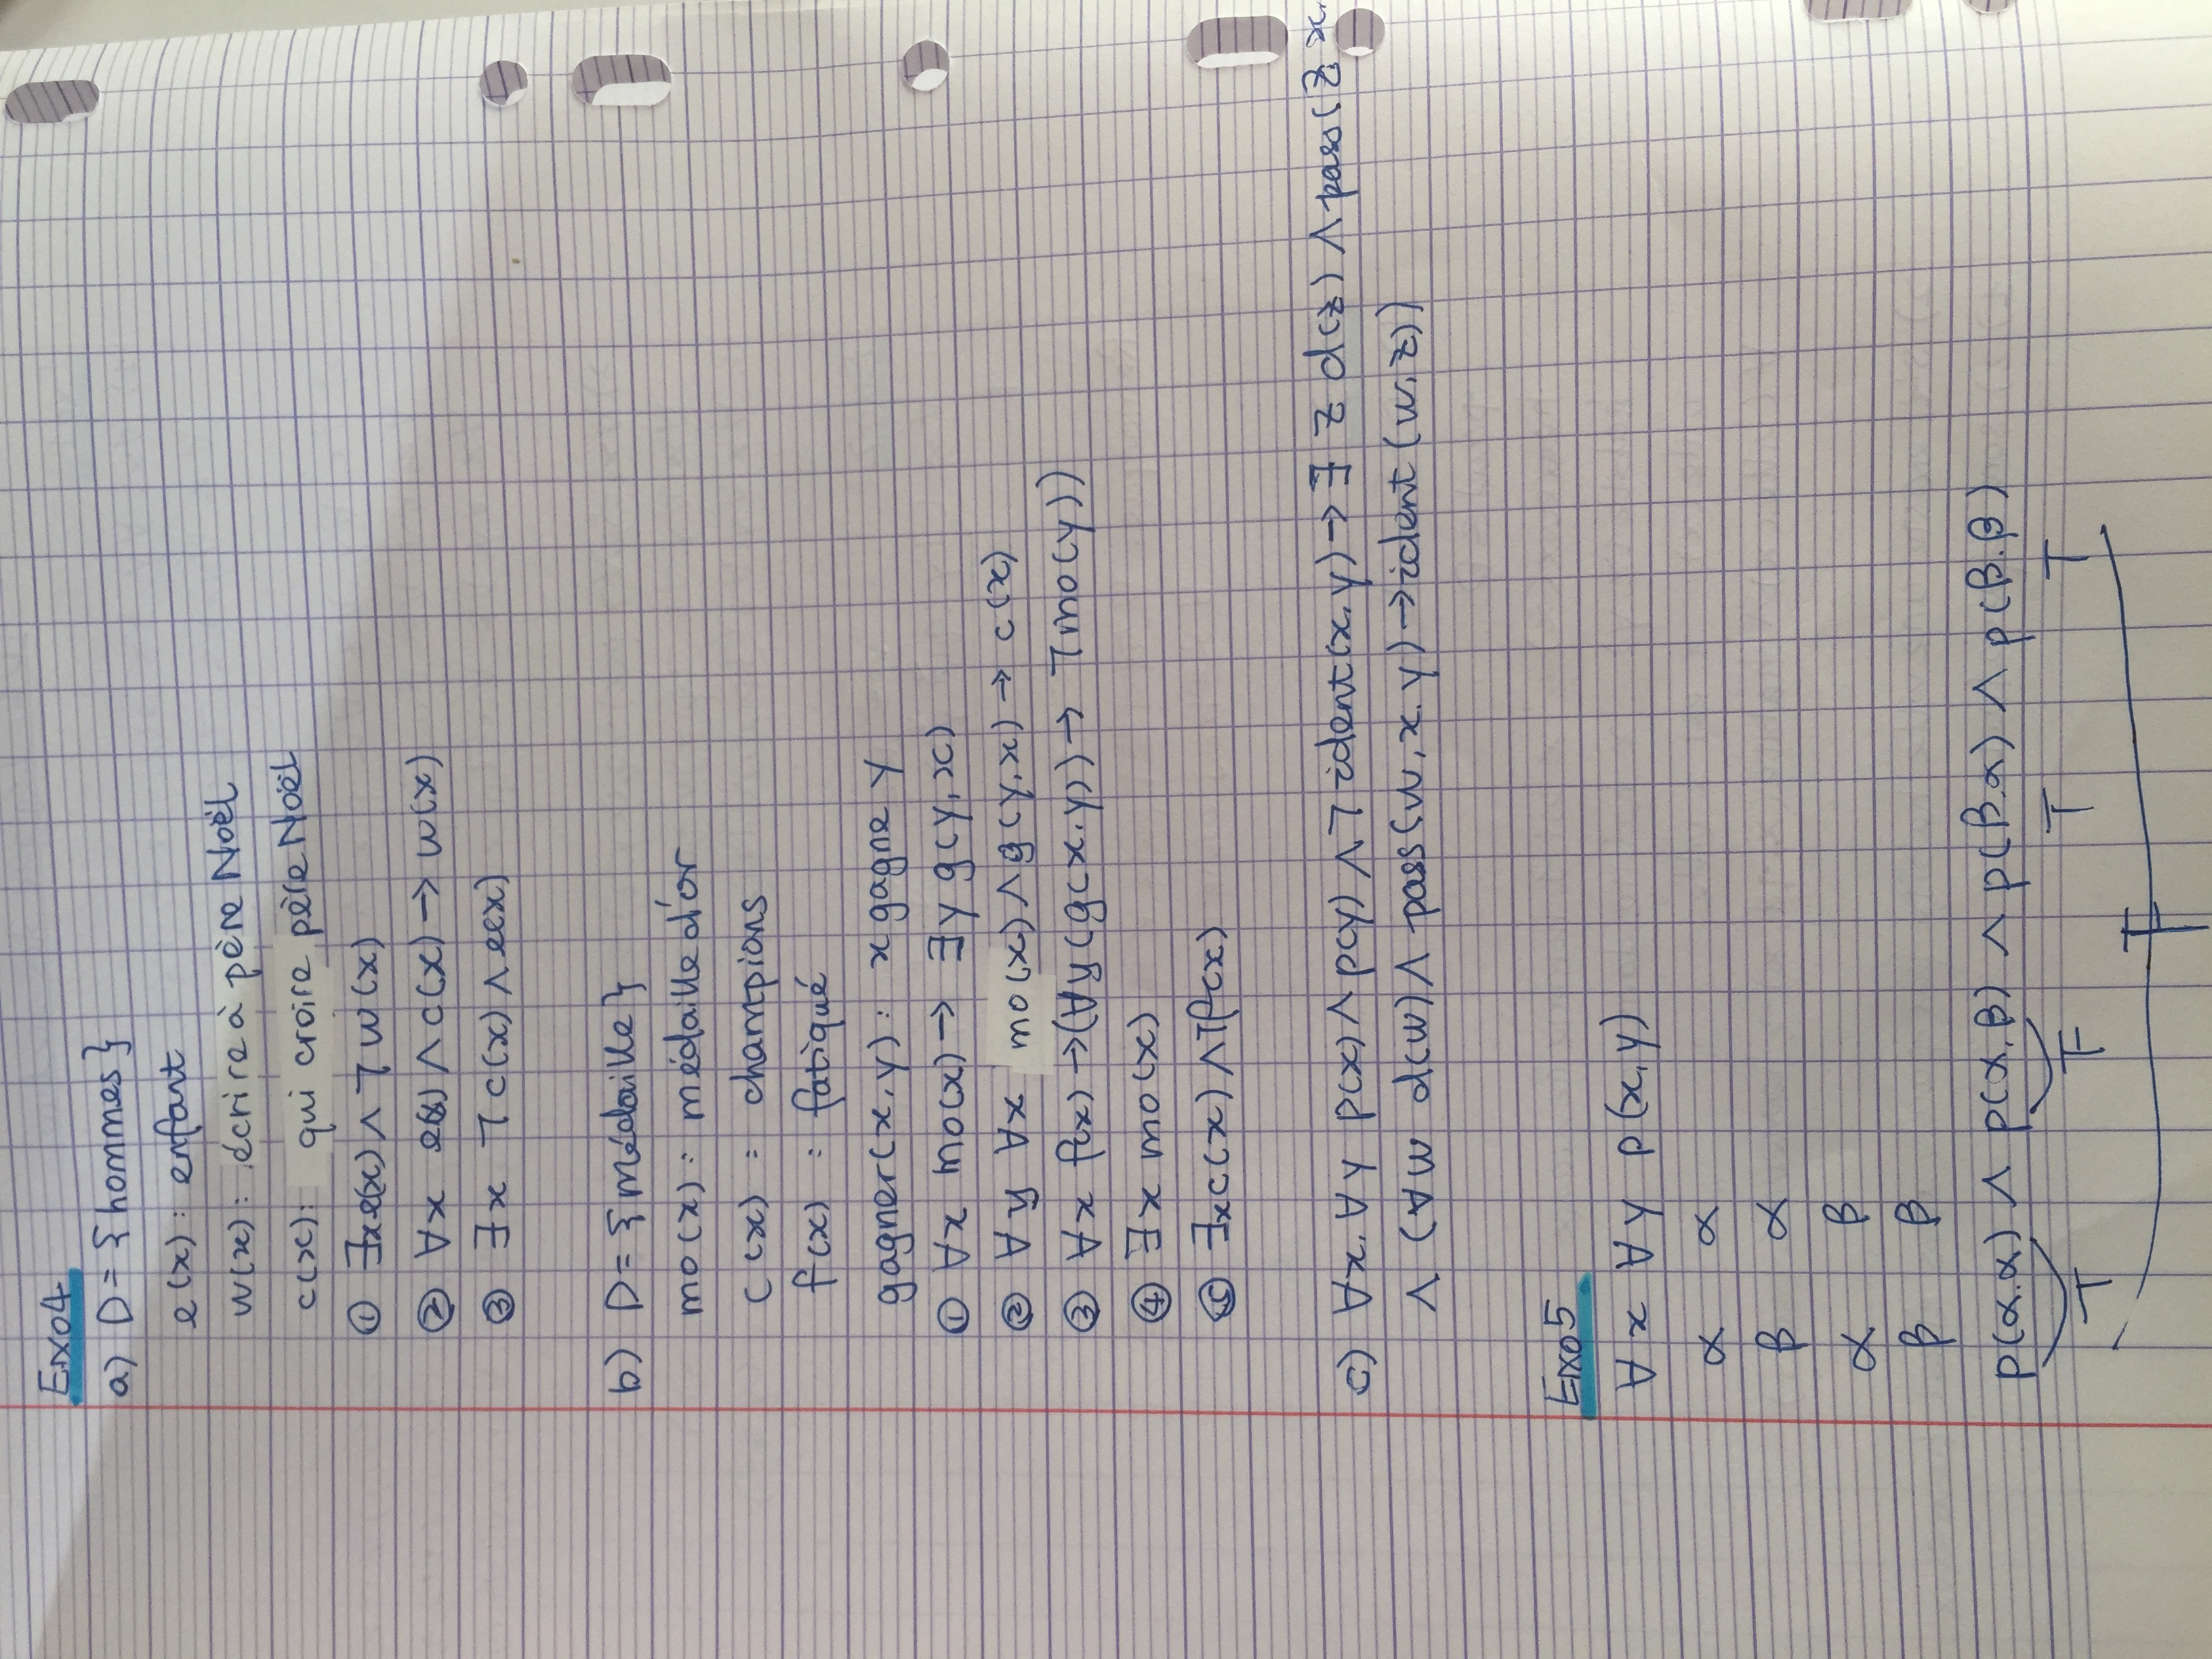 Exo4
a) D = {hommes}
e(x) : enfant
w(x) : écrire à père Noël
c(x) : qui croire père Noël
① ∃x e(x) ∧ ¬ w(x)
② ∀x e(x) ∧ c(x) → w(x)
③ ∃x ¬ c(x) ∧ e(x)
b) D = {médaille}
mo(x) : médaille d'or
c(x) : champions
f(x) : fatiqué
gagner(x, y) : x gagne y
① ∀x mo(x) → ∃y g(y, x)
② ∀y ∀x mo(x) ∧ g(y, x) → c(x)
③ ∀x f(x) → (∀y (g(x, y)) → ¬mo(y))
④ ∃x mo(x)
⑤ ∃x c(x) ∧ ¬f(x)
c) ∀x, ∀y p(x) ∧ p(y) ∧ ¬ ident(x, y) → ∃ z d(z) ∧ pass(z, x,
∧ (∀w d(w) ∧ pass(w, x, y) → ident(w, z))
Exo5
∀x ∀y p(x, y)
α α
β α
α β
β β
p(α.α) ∧ p(α.β) ∧ p(β.α) ∧ p(β.β)
T F T T
F